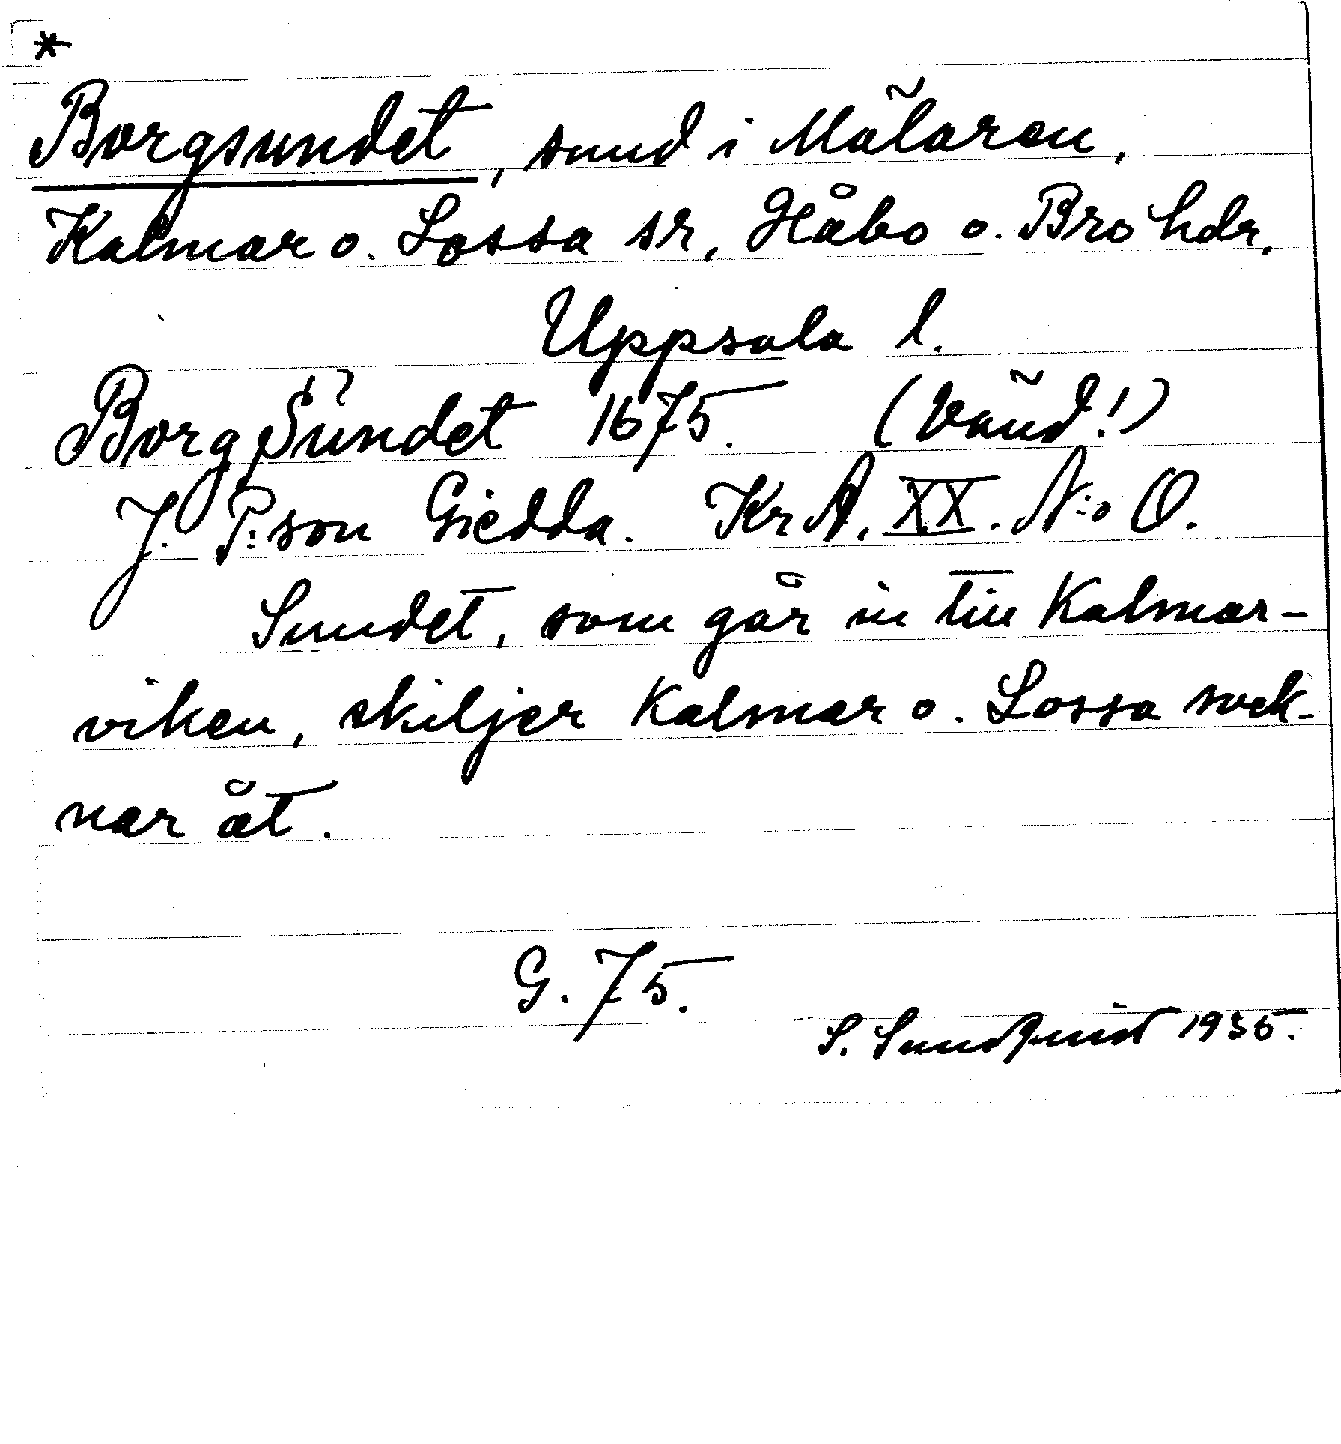 *
Borgsundet, sund i Mälaren,
Kalmar o. Lossa sr, Håbo o. Bro hdr,
Uppsala l.
Borg Sundet 1675. (Vänd!)
J. P:son Giedda. KrA. XX. N:o O.
Sundet, som går in till Kalmar-
viken, skiljer Kalmar o. Lossa sock-
nar åt.
G. 75.
S. Sundquist 1935.